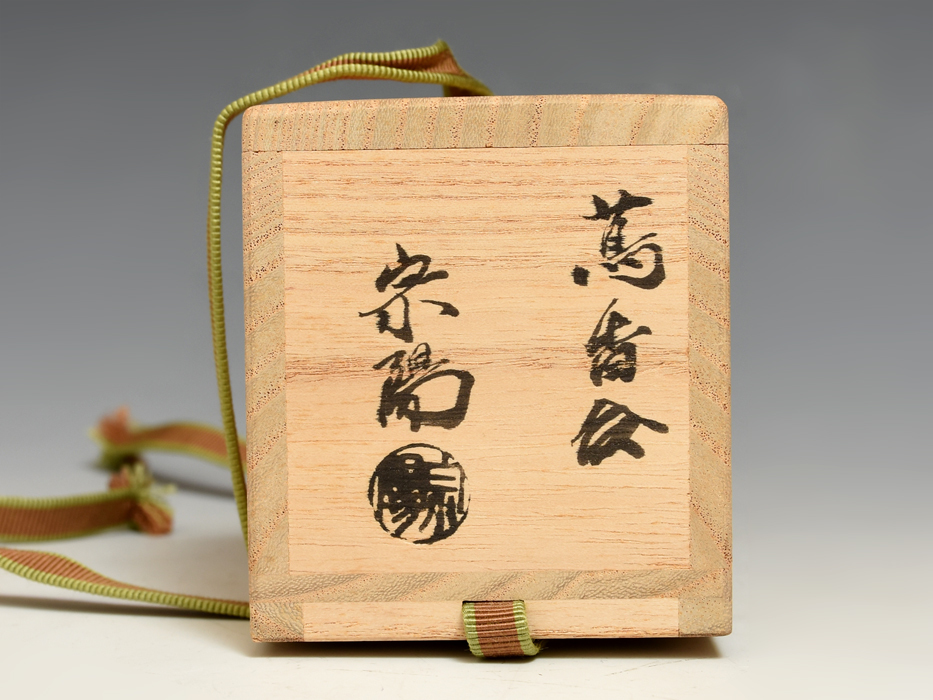 蔦香合
宗陽